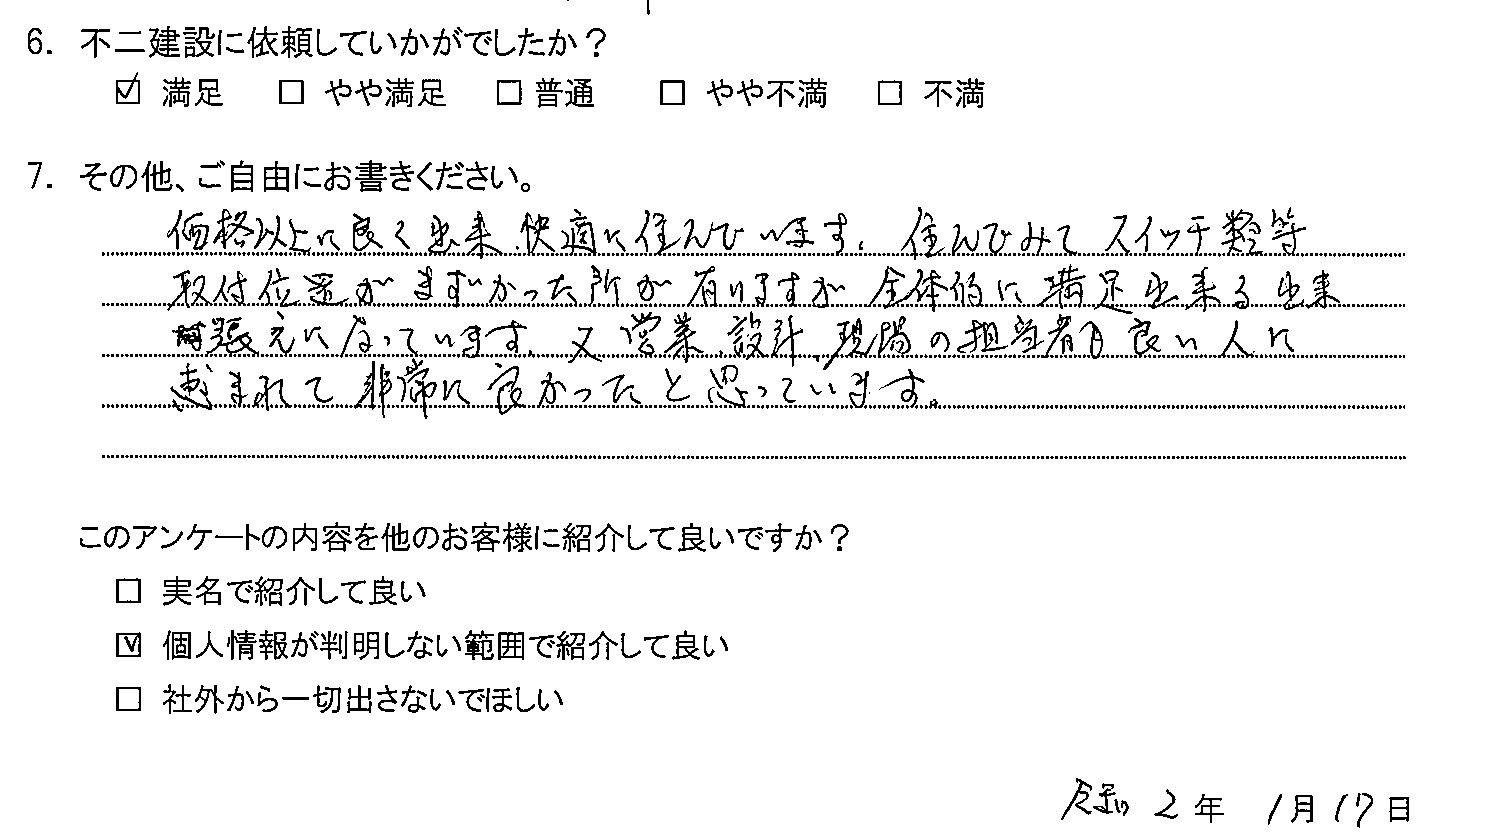 6. 不二建設に依頼していかがでしたか？
☑ 満足 □ やや満足 □ 普通 □ やや不満 □ 不満
7. その他、ご自由にお書きください。
価格以上に良く出来、快適に住んでいます。住んでみてスイッチ類等
取付位置がまずかった所が有りますが全体的に満足出来る出来
になっています。又営業、設計、現場の担当者も良い人に
恵まれて非常に良かったと思っています。
このアンケートの内容を他のお客様に紹介して良いですか？
□ 実名で紹介して良い
☑ 個人情報が判明しない範囲で紹介して良い
□ 社外から一切出さないでほしい
令和 2年 1月17日